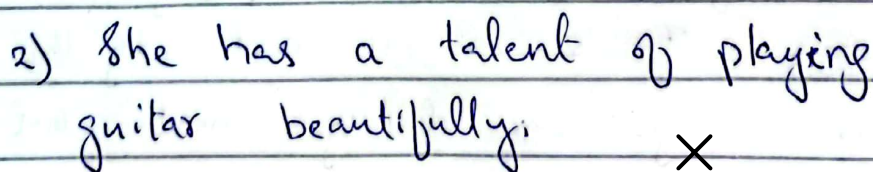 2) She has a talent of playing
guitar beautifully.